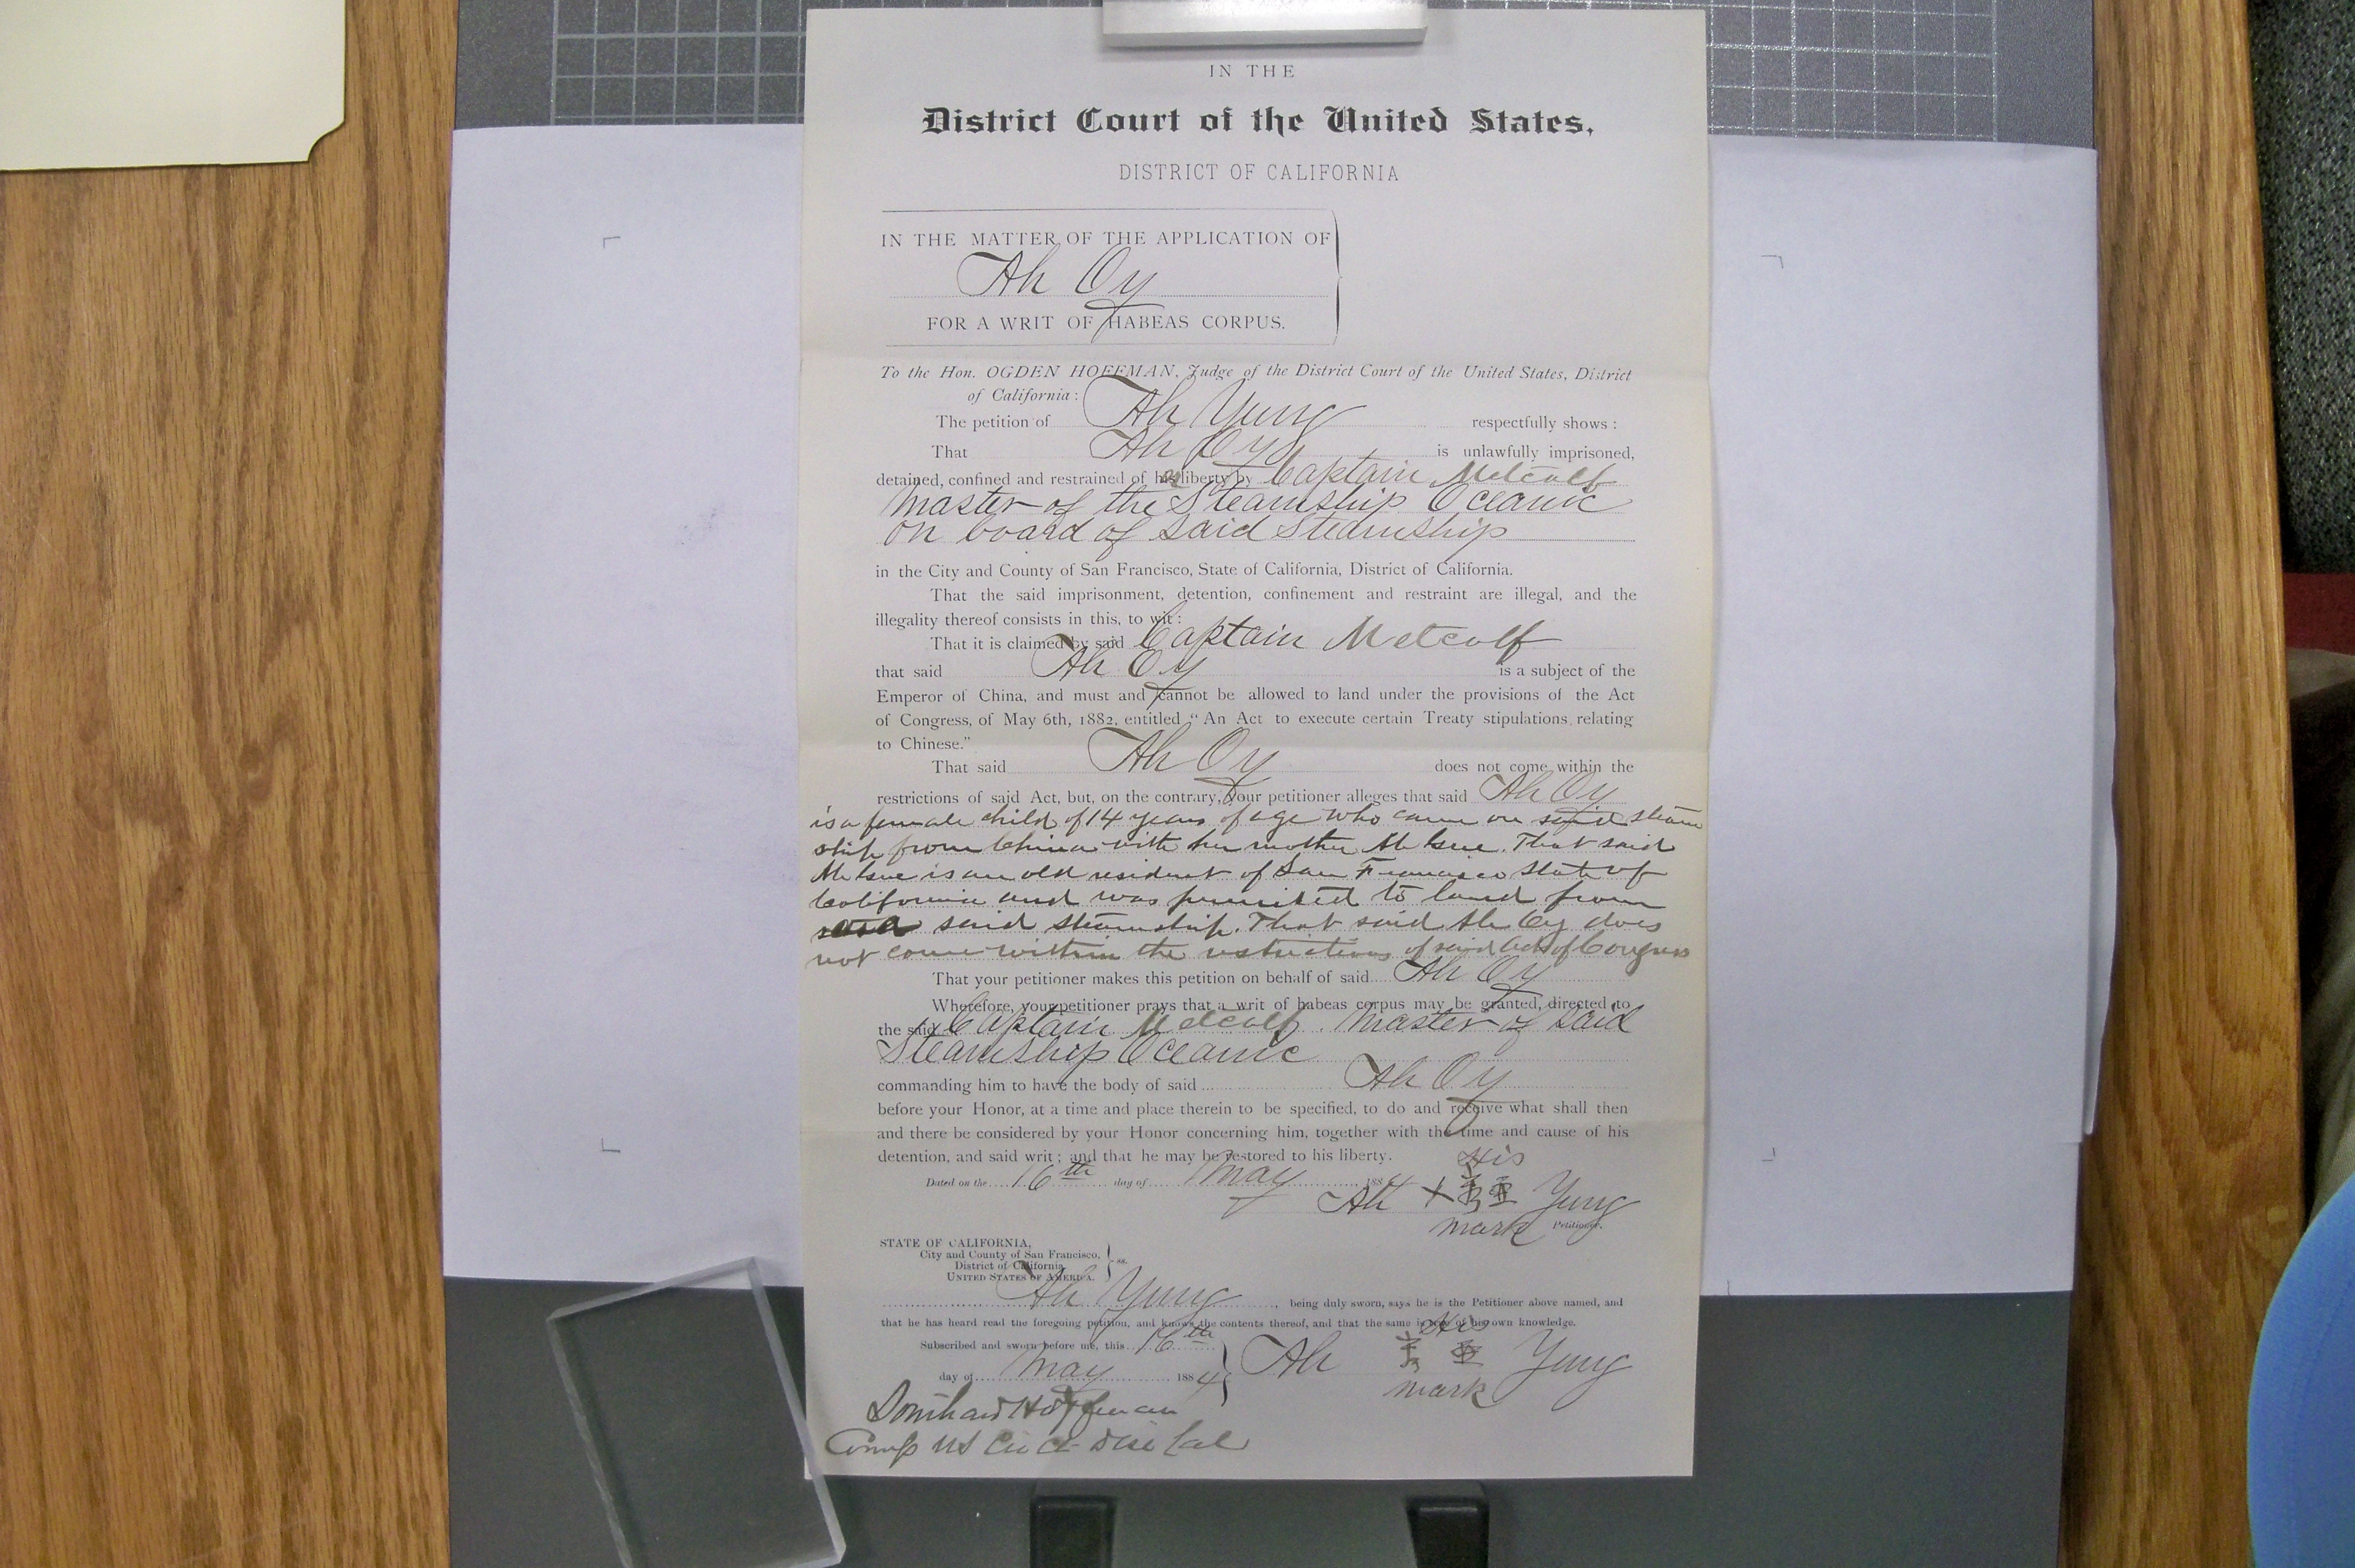 IN THE
District Court of the United States,
DISTRICT OF CALIFORNIA
IN THE MATTER OF THE APPLICATION OF
Ah Oy
FOR A WRIT OF HABEAS CORPUS.
To the Hon. OGDEN HOFFMAN, Judge of the District Court of the United States, District
of California:
The petition of Ah Yung respectfully shows:
That Ah Oy is unlawfully imprisoned,
detained, confined and restrained of her liberty by Captain Metcalf
Master of the Steamship Oceanic
on board of said Steamship
in the City and County of San Francisco, State of California, District of California.
That the said imprisonment, detention, confinement and restraint are illegal, and the
illegality thereof consists in this, to wit:
That it is claimed by said Captain Metcalf
that said Ah Oy is a subject of the
Emperor of China, and must and cannot be allowed to land under the provisions of the Act
of Congress, of May 6th, 1882, entitled "An Act to execute certain Treaty stipulations relating
to Chinese."
That said Ah Oy does not come within the
restrictions of said Act, but, on the contrary, your petitioner alleges that said Ah Oy
is a female child of 14 years of age who came on said steam
ship from China with her mother Ah . That said
Ah is an old resident of San Francisco State of
California and was permitted to land from
said steamship. That said Ah Oy does
not come within the restrictions of said Act of Congress
That your petitioner makes this petition on behalf of said Ah Oy
Wherefore, your petitioner prays that a writ of habeas corpus may be granted, directed to
the said Captain Metcalf. Master of said
Steamship Oceanic
commanding him to have the body of said Ah Oy
before your Honor, at a time and place therein to be specified, to do and receive what shall then
and there be considered by your Honor concerning him, together with the time and cause of his
detention, and said writ; and that he may be restored to his liberty.
His
Dated on the 16th day of May 188
Ah + Yung
mark Petitioner.
STATE OF CALIFORNIA,
City and County of San Francisco,
District of California } ss.
UNITED STATES OF AMERICA.
Ah Yung, being duly sworn, says he is the Petitioner above named, and
that he has heard read the foregoing petition, and knows the contents thereof, and that the same is true of his own knowledge.
His
Subscribed and sworn before me, this 16th
Ah Yung
day of May 1884
mark
Hoffman